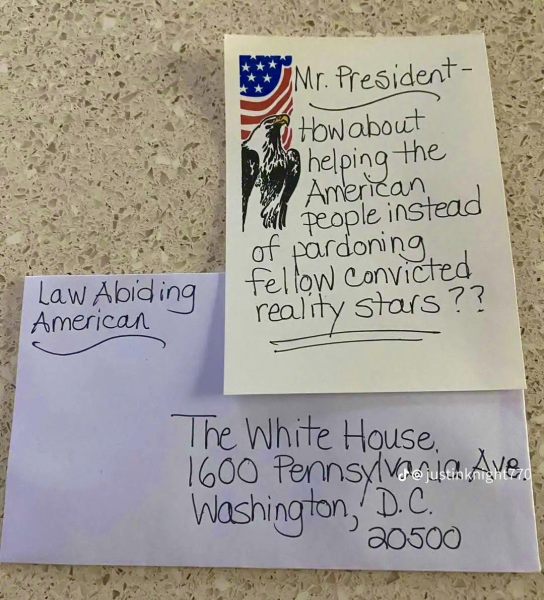 Mr. President-
How about
helping the
American
people instead
of pardoning
fellow convicted
reality stars??
Law Abiding
American
The White House
1600 Pennsylvania Ave.
@justinknight770
Washington, D.C.
20500